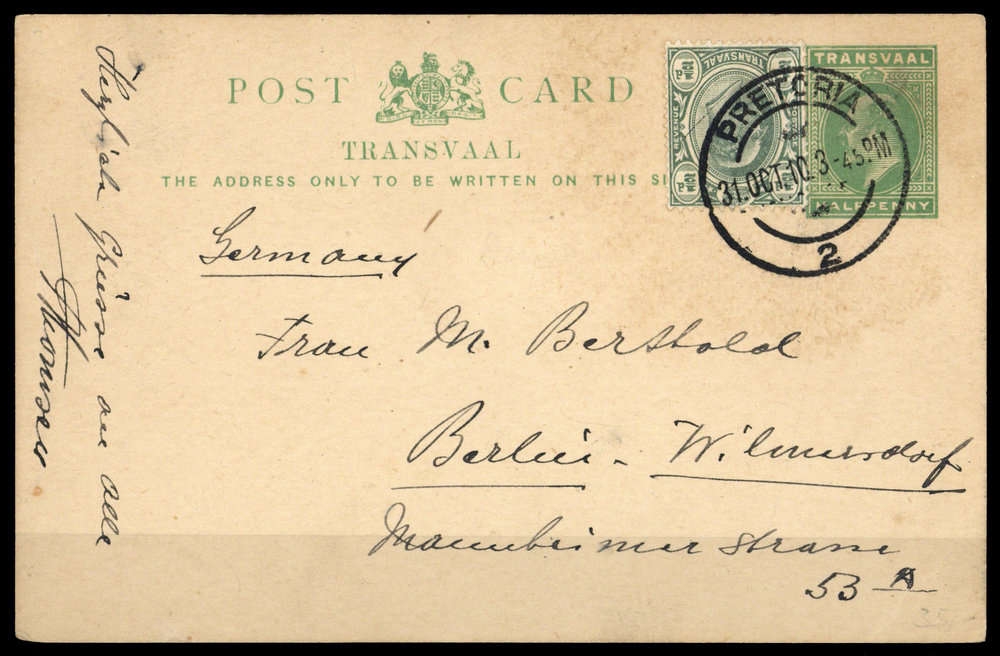 POST CARD
TRANSVAAL
THE ADDRESS ONLY TO BE WRITTEN ON THIS SI
TRANSVAAL
HALFPENNY
TRANSVAAL
PRETORIA
31.OCT.10.3-45PM
2
Germany
Frau M. Berthold
Berlin-Wilmersdorf
Mannheimer Strasse
53 A
Herzliche Grüsse an alle
35